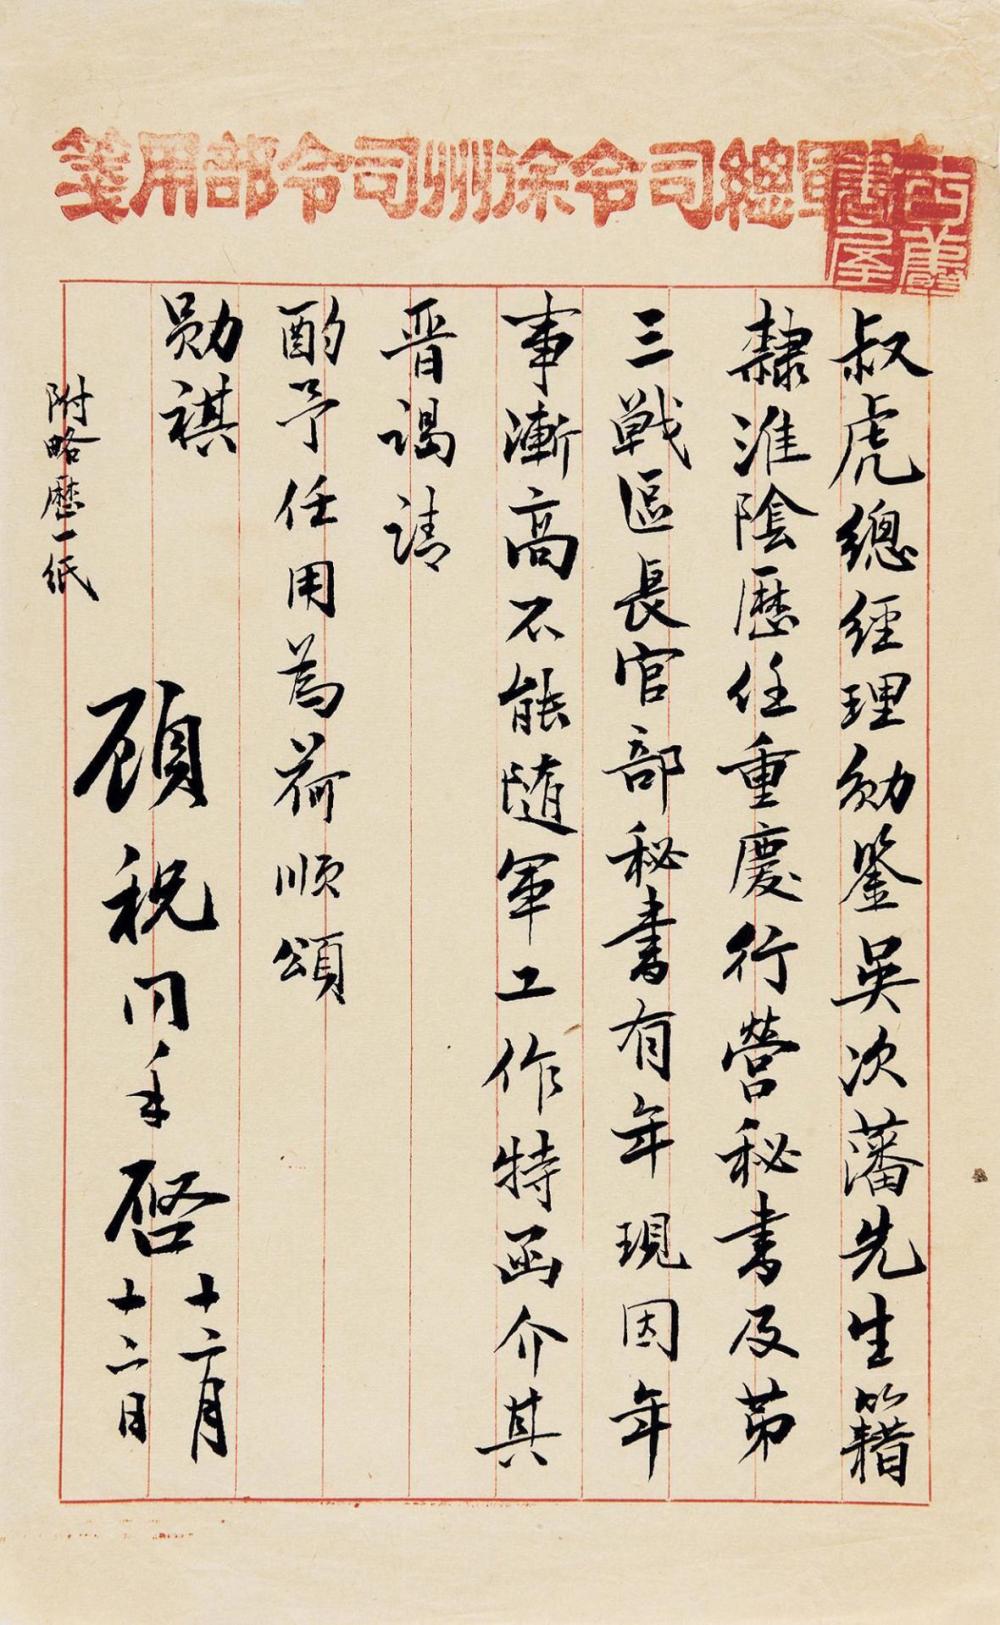 軍總司令徐州司令部用箋
叔虎總經理勛鑒吳次藩先生籍
隸淮陰歷任重慶行營秘書及第
三戰區長官部秘書有年現因年
事漸高不能隨軍工作特函介其
晋謁請
酌予任用為荷順頌
勛祺
顧祝同手啓
十二月
十二日
附略歷一紙